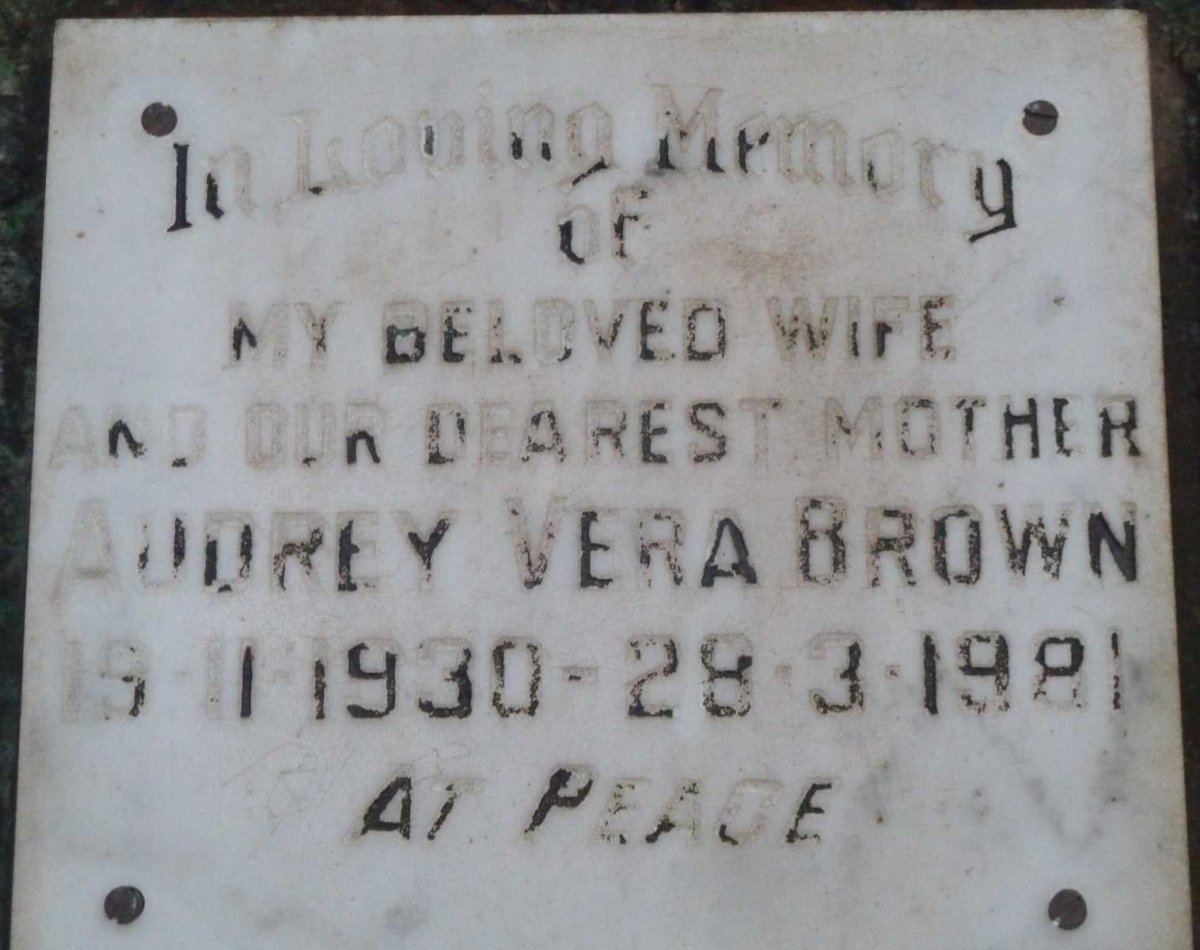 In Loving Memory
of
MY BELOVED WIFE
AND OUR DEAREST MOTHER
AUDREY VERA BROWN
19·11·1930-28·3·1981
AT PEACE